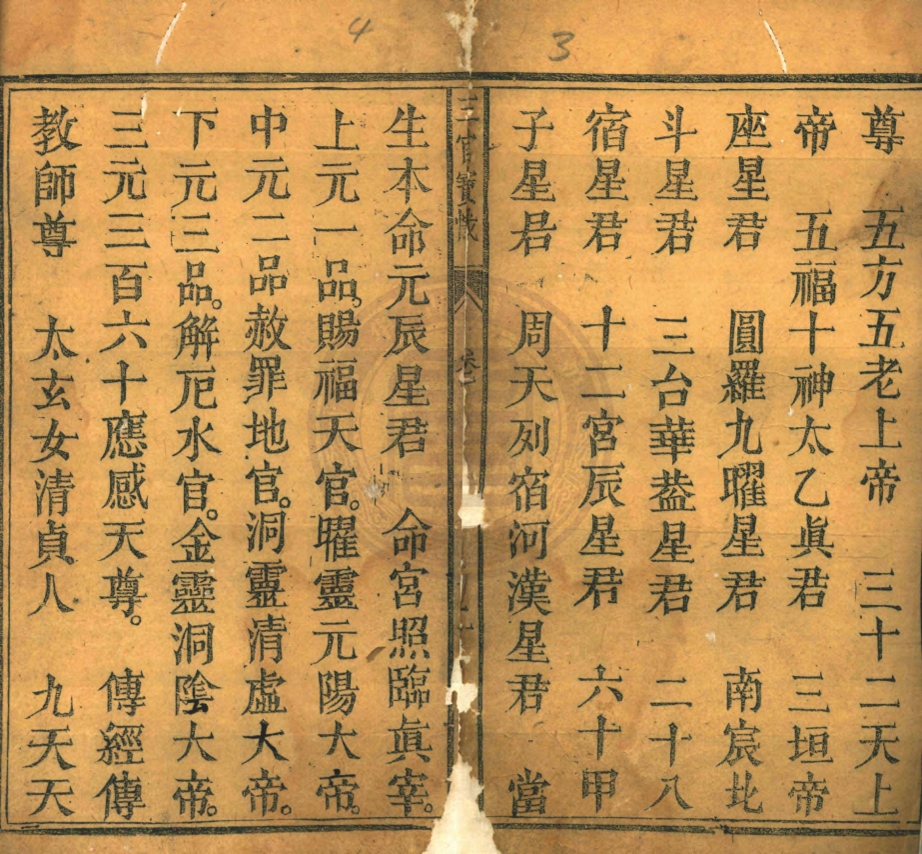 4
3
尊　五方五老上帝　三十二天上
帝　五福十神太乙眞君　三垣帝
座星君　圓羅九曜星君　南宸北
斗星君　三台華葢星君　二十八
宿星君　十二宮辰星君　六十甲
子星君　周天列宿河漢星君　當
三官寶懺　卷一
生本命元辰星君　命宮照臨眞宰。
上元一品。賜福天官。曜靈元陽大帝。
中元二品赦罪地官。洞靈清虛大帝。
下元三品。解厄水官。金靈洞陰大帝。
三元三百六十應感天尊。　傳經傳
教師尊　太玄女清貞人　九天天